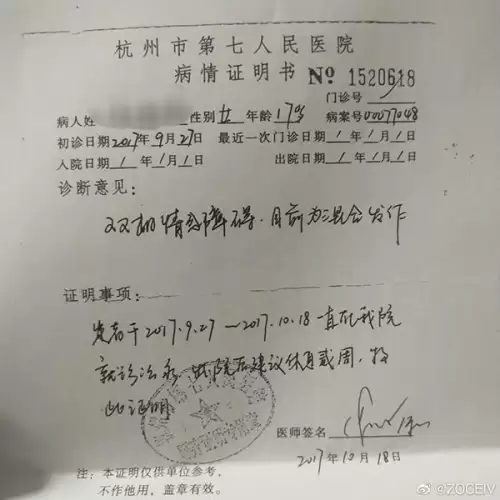 杭州市第七人民医院
病情证明书 № 1520618
门诊号
病人姓 性别 女 年龄 17岁 病案号 00077048
初诊日期 2017年9月27日 最近一次门诊日期 1年1月1日
入院日期 1年1月1日 出院日期 1年1月1日
诊断意见：
双相情感障碍，目前为混合发作
证明事项：
患者于2017.9.27—2017.10.18一直在我院
就诊治疗，出院后建议休息贰周，特
此证明
医师签名
2017年10月18日
注：本证明仅供单位参考，
不作他用，盖章有效。
@ZOCEIV